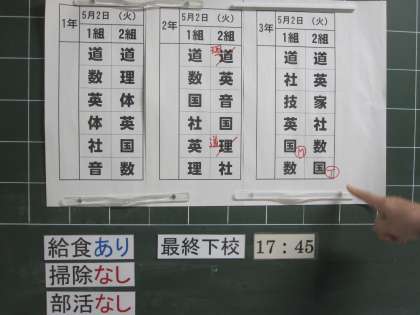 1年
5月2日 (火)
1組 2組
道 道
数 理
英 体
体 英
社 国
音 数
2年
5月2日 (火)
1組 2組
道 理 道
数 英
国 音
社 国
英 道 理
理 社
3年
5月2日 (火)
1組 2組
道 道
社 英
技 家
英 社
国 M 数
数 国 T
給食あり
掃除なし
部活なし
最終下校 17:45